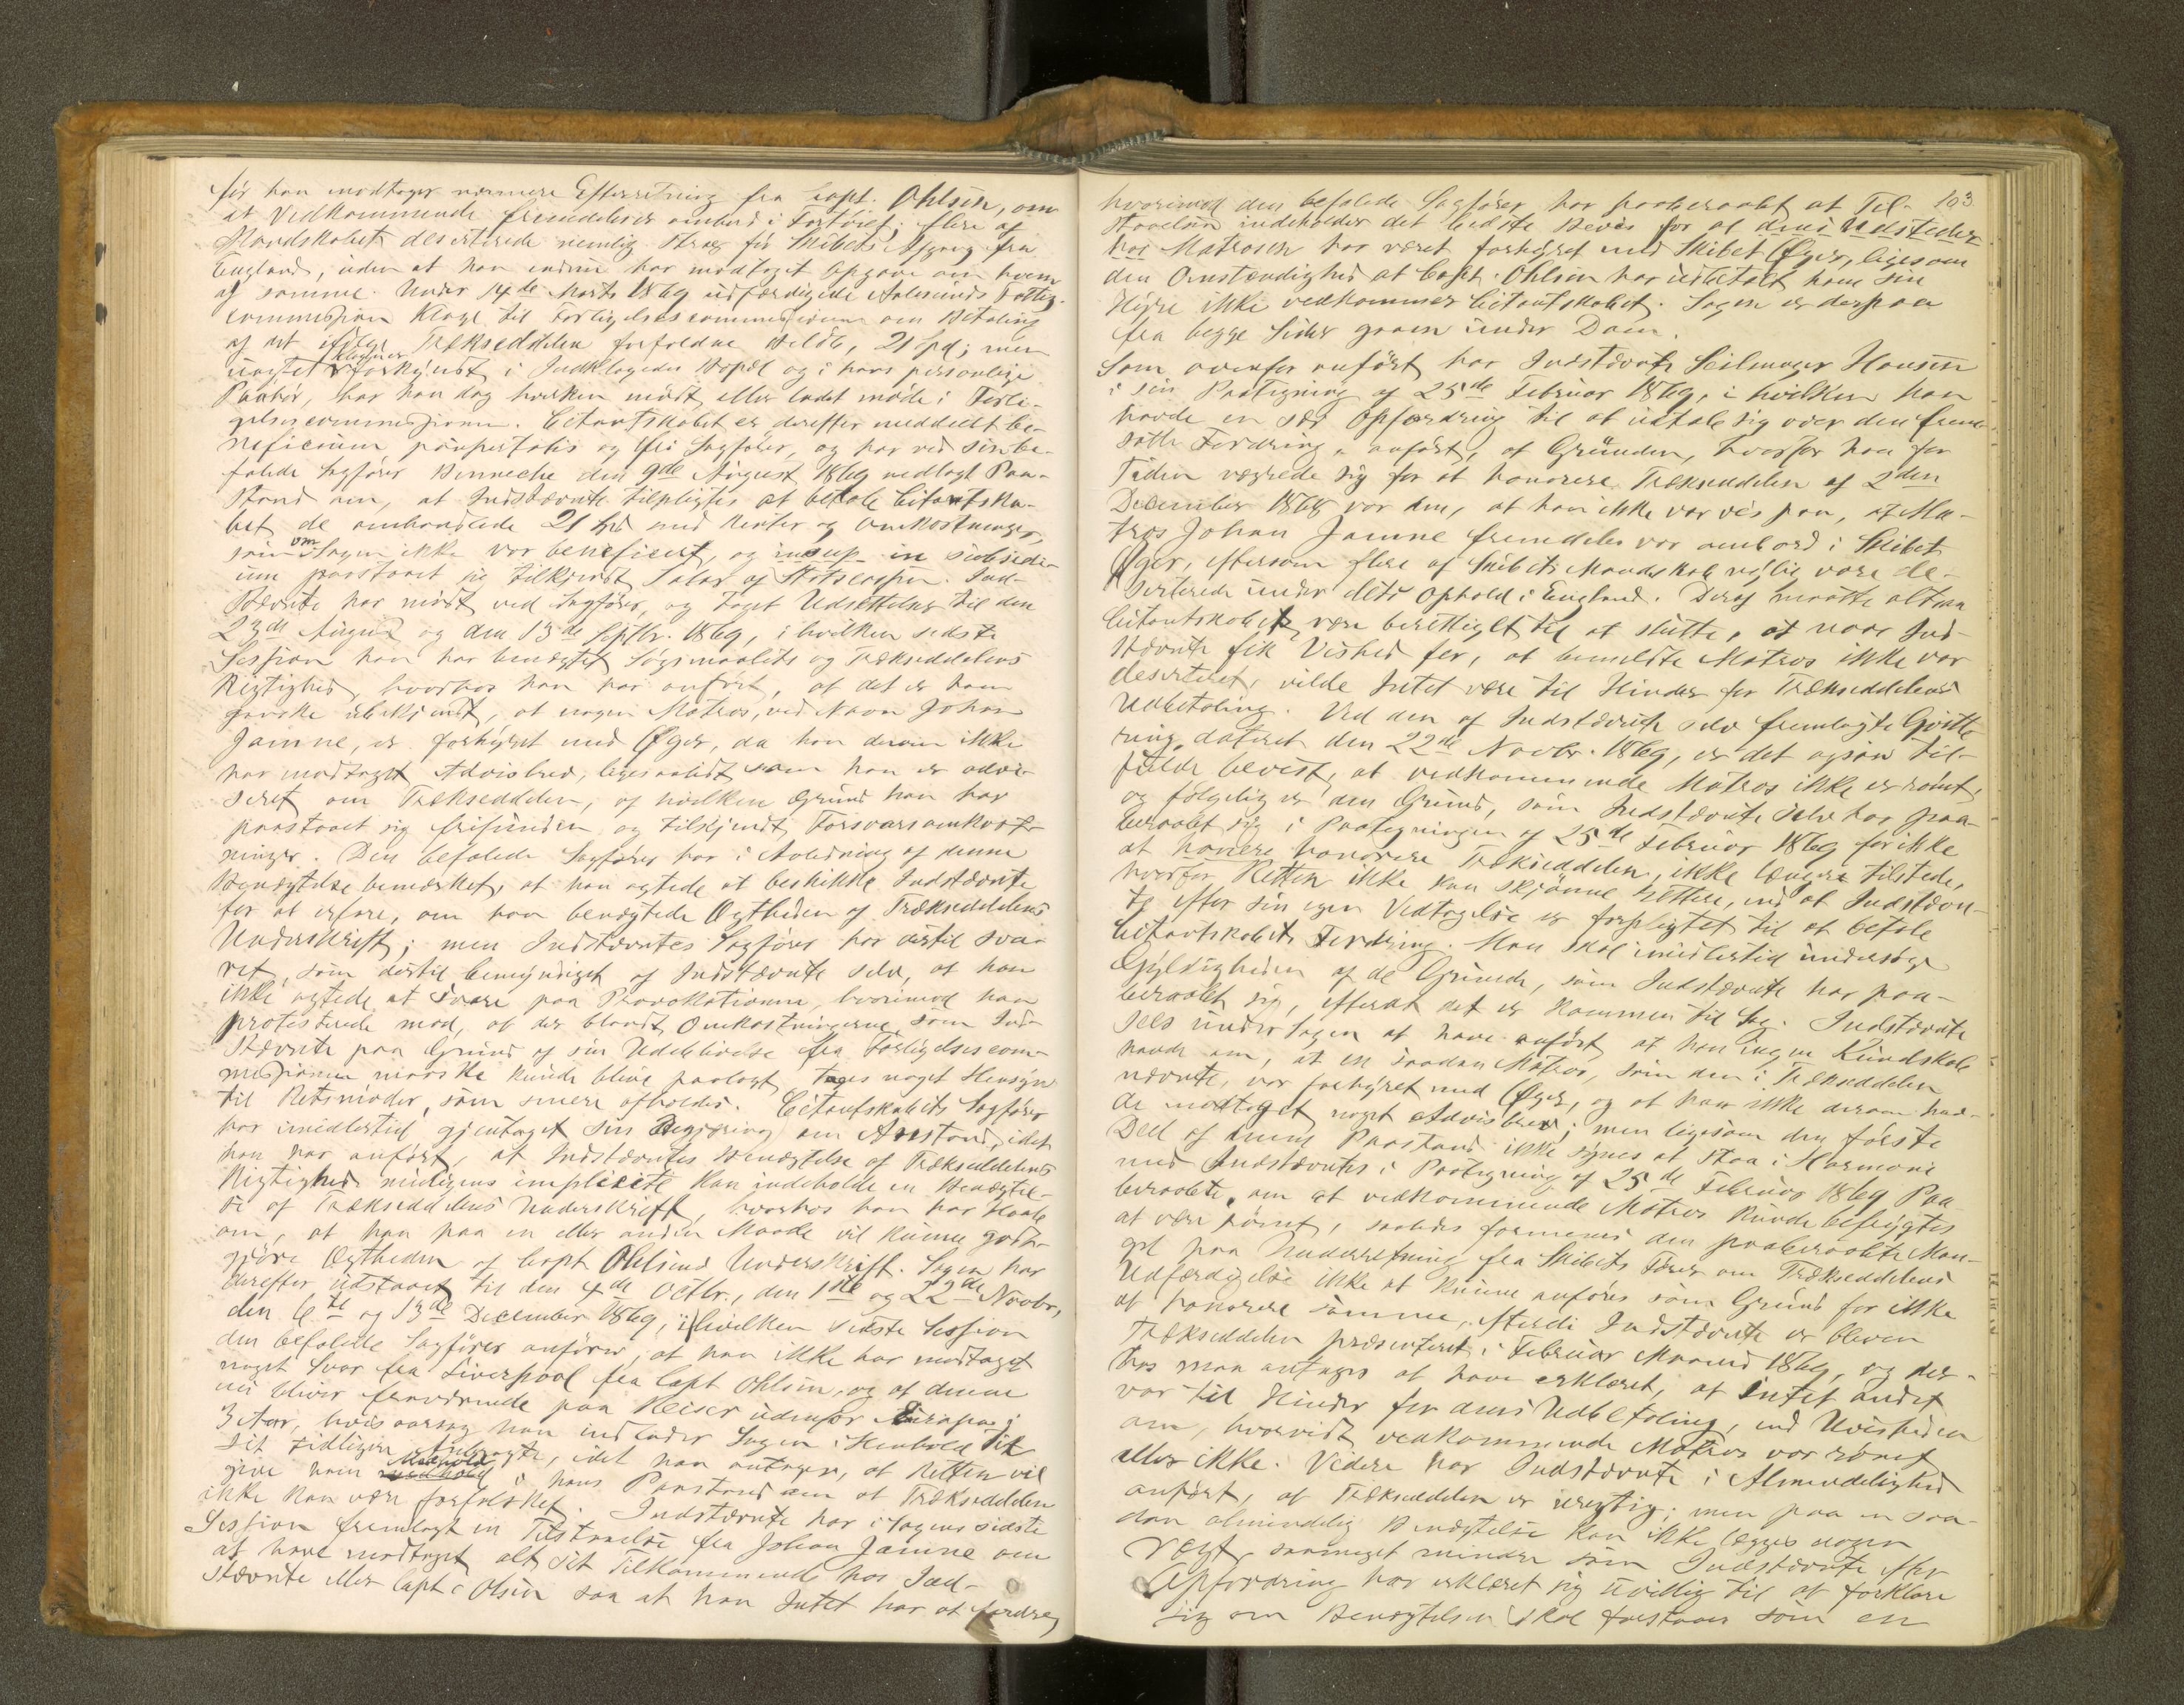 før han modtager nærmere Efterretning fra Capt. Ohlsen, om
at Vedkommende fremdeles er ombord i Fartøiet; flere af
Mandskabet deserterede nemlig strax før Skibets Afgang fra
England, uden at han endnu har modtaget Opgave om hvem
af samme. Under 14de Marts 1869 udfærdigede Aalesunds Fattig-
commission Klage til Forligelsescommissionen om Betaling
af det ifølge Trækseddelen forfaldne Beløb, 21 Spd; men
uagtet Klagen er forkyndt i Indklagedes Bopæl og i hans personlige
Paahør, har han dog hverken mødt eller ladet møde i Forli-
gelsescommissionen. Citantskabet er derefter meddeelt be-
neficium paupertatis og fri Sagfører, og har ved sin be-
falede Sagfører Hinneche den 9de August 1869 nedlagt Paa-
stand om, at Indstævnte tilpligtes at betale Citantska-
bet de omhandlede 21 Spd med Renter og Omkostninger,
som om Sagen ikke var beneficeret, og in subsidi-
um paastaaet sig tilkjendt Salær af Statscassen. Ind-
stævnte har mødt ved Sagfører, og taget Udsættelser til den
23de August og den 13de Septbr. 1869, i hvilken sidste
Session han har benægtet Søgsmaalets og Trækseddelens
Rigtighed, hvorhos han har anført, at det er ham
ganske ubekjendt, at nogen Matros, ved Navn Johan
Jamne, er forhyret med Øger, da han derom ikke
har modtaget Advisbrev, ligesaalidt som han er advi-
seret om Trækseddelen, af hvilken Grund han har
paastaaet sig frifunden og tilkjendt Forsvarsomkost-
ninger. Den befalede Sagfører har i Anledning af denne
Benægtelse bemærket, at han agtede at beskikke Indstævnte
for at erfare, om han benægtede Ægtheden af Trækseddelens
Underskrift; men Indstævntes Sagfører har dertil sva-
ret, som dertil bemyndiget af Indstævnte selv, at han
ikke agtede at svare paa Provokationen, hvorimod han
protesterede mod, at der blandt Omkostningerne, som Ind-
stævnte paa Grund af sin Udeblivelse fra Forligelsescom-
missionen maaske kunde blive paalagt, toges noget Hensyn
til Retsmøder, som senere afholdes. Citantskabets Sagfører
har imidlertid gjentaget sin Begjæring om Anstand, idet
han har anført, at Indstævntes Benægtelse af Trækseddelens
Rigtighed muligens implicite kan indeholde en Benægtel-
se af Trækseddelens Underskrift, hvorhos han har Haab
om, at han paa en eller anden Maade vil kunne godt-
gjøre Ægtheden af Capt Ohlsens Underskrift. Sagen har
derefter udstaaet til den 4de Octbr., den 1ste og 22de Novbr,
den 6te og 13de December 1869, i hvilken sidste Session
den befalede Sagfører anfører, at han ikke har modtaget
noget Svar fra Liverpool fra Capt Ohlsen, og at denne
nu bliver fraværende paa Reiser udenfor Europa i
3 Aar, hvisaarsag han indlader Sagen i Henhold til
sit tidligere Anbragte, idet han antager, at Retten vil
give ham Medhold i hans Paastand om at Trækseddelen
ikke kan være forfalsket. Indstævnte har i Sagens sidste
Session fremlagt en Tilstaaelse fra Johan Jamne om
at have modtaget alt sit Tilkommende hos Ind-
stævnte eller Capt Olsen saa at han Intet har at fordre,
103
hvorimod den befalede Sagfører har paaberaabt at Til-
staaelsen indeholder det bedste Beviis for at dens Udsteder
hos Matrosen har været forhyret med Skibet Øger, ligesom
den Omstændighed at Capt. Ohlsen har udbetalt ham sin
Hyre ikke vedkommer Citantskabet. Sagen er derpaa
fra begge Sider gaaen under Dom.
Som ovenfor anført har Indstævnte Seilmager Hansen
i sin Paategning af 25de Februar 1869, i hvilken han
havde en sær Opfordring til at udtale sig over den frem-
satte Fordring, anført, at Grunden, hvorfor han for
Tiden vægrede sig for at honorere Trækseddelen af 2den
December 1868 var den, at han ikke var vis paa, at Ma-
tros Johan Jamne fremdeles var ombord i Skibet
Øger, eftersom flere af Skibets Mandskab nylig vare de-
serterede under dets Ophold i England. Deraf maatte altsaa
Citantskabet være berettiget til at slutte, at naar Ind-
stævnte fik Vished for, at bemeldte Matros ikke var
deserteret, vilde Intet være til Hinder for Trækseddelens
Udbetaling. Ved den af Indstævnte selv fremlagte Qvitte-
ring, dateret den 22de Novbr. 1869, er det ogsaa til-
fulde bevist, at vedkommende Matros ikke er rømt,
og følgelig er den Grund, som Indstævnte selv har paa-
beraabt sig i Paategningen af 25de Februar 1869 for ikke
at honorere Trækseddelen, ikke længere tilstede,
hvorfor Retten ikke kan skjønne rettere, end at Indstævn-
te efter sin egen Vedtagelse er forpligtet til at betale
Citantskabets Fordring. Man skal imidlertid undersøge
Gyldigheden af de Grunde, som Indstævnte har paa-
beraabt sig, efterat det er kommen til Sag. Indstævnte
sees under Sagen at have anført at han ingen Kundskab
havde om, at en saadan Matros, som den i Trækseddelen
nævnte, var forhyret med Øger, og at han ikke derom hav-
de modtaget noget Advisbrev; men ligesom den første
Deel af denne Paastand ikke synes at staa i Harmoni
med Indstævntes i Paategning af 25de Februar 1869 Paa-
beraabte, om at vedkommende Matros kunde befrygtes
at være rømt, saaledes formenes den paaberaabte Man-
gel paa Underretning fra Skibets Fører om Trækseddelens
Udfærdigelse ikke at kunne anføres som Grund for ikke
at honorere samme, efterdi Indstævnte er bleven
Trækseddelen præsenteret i Februar Maaned 1869, og der-
hos maa antages at have erklæret, at Intet andet
var til Hinder for dens Udbetaling, end Uvisheden
om, hvorvidt vedkommende Matros var rømt
eller ikke. Videre har Indstævnte i Almindelighed
anført, at Trækseddelen er urigtig; men paa en saa-
dan almindelig Benægtelse kan ikke lægges nogen
Vægt, saameget mindre som Indstævnte efter
Opfordring har erklæret sig uvillig til at forklare
sig om Benægtelsen skal forstaaes som en